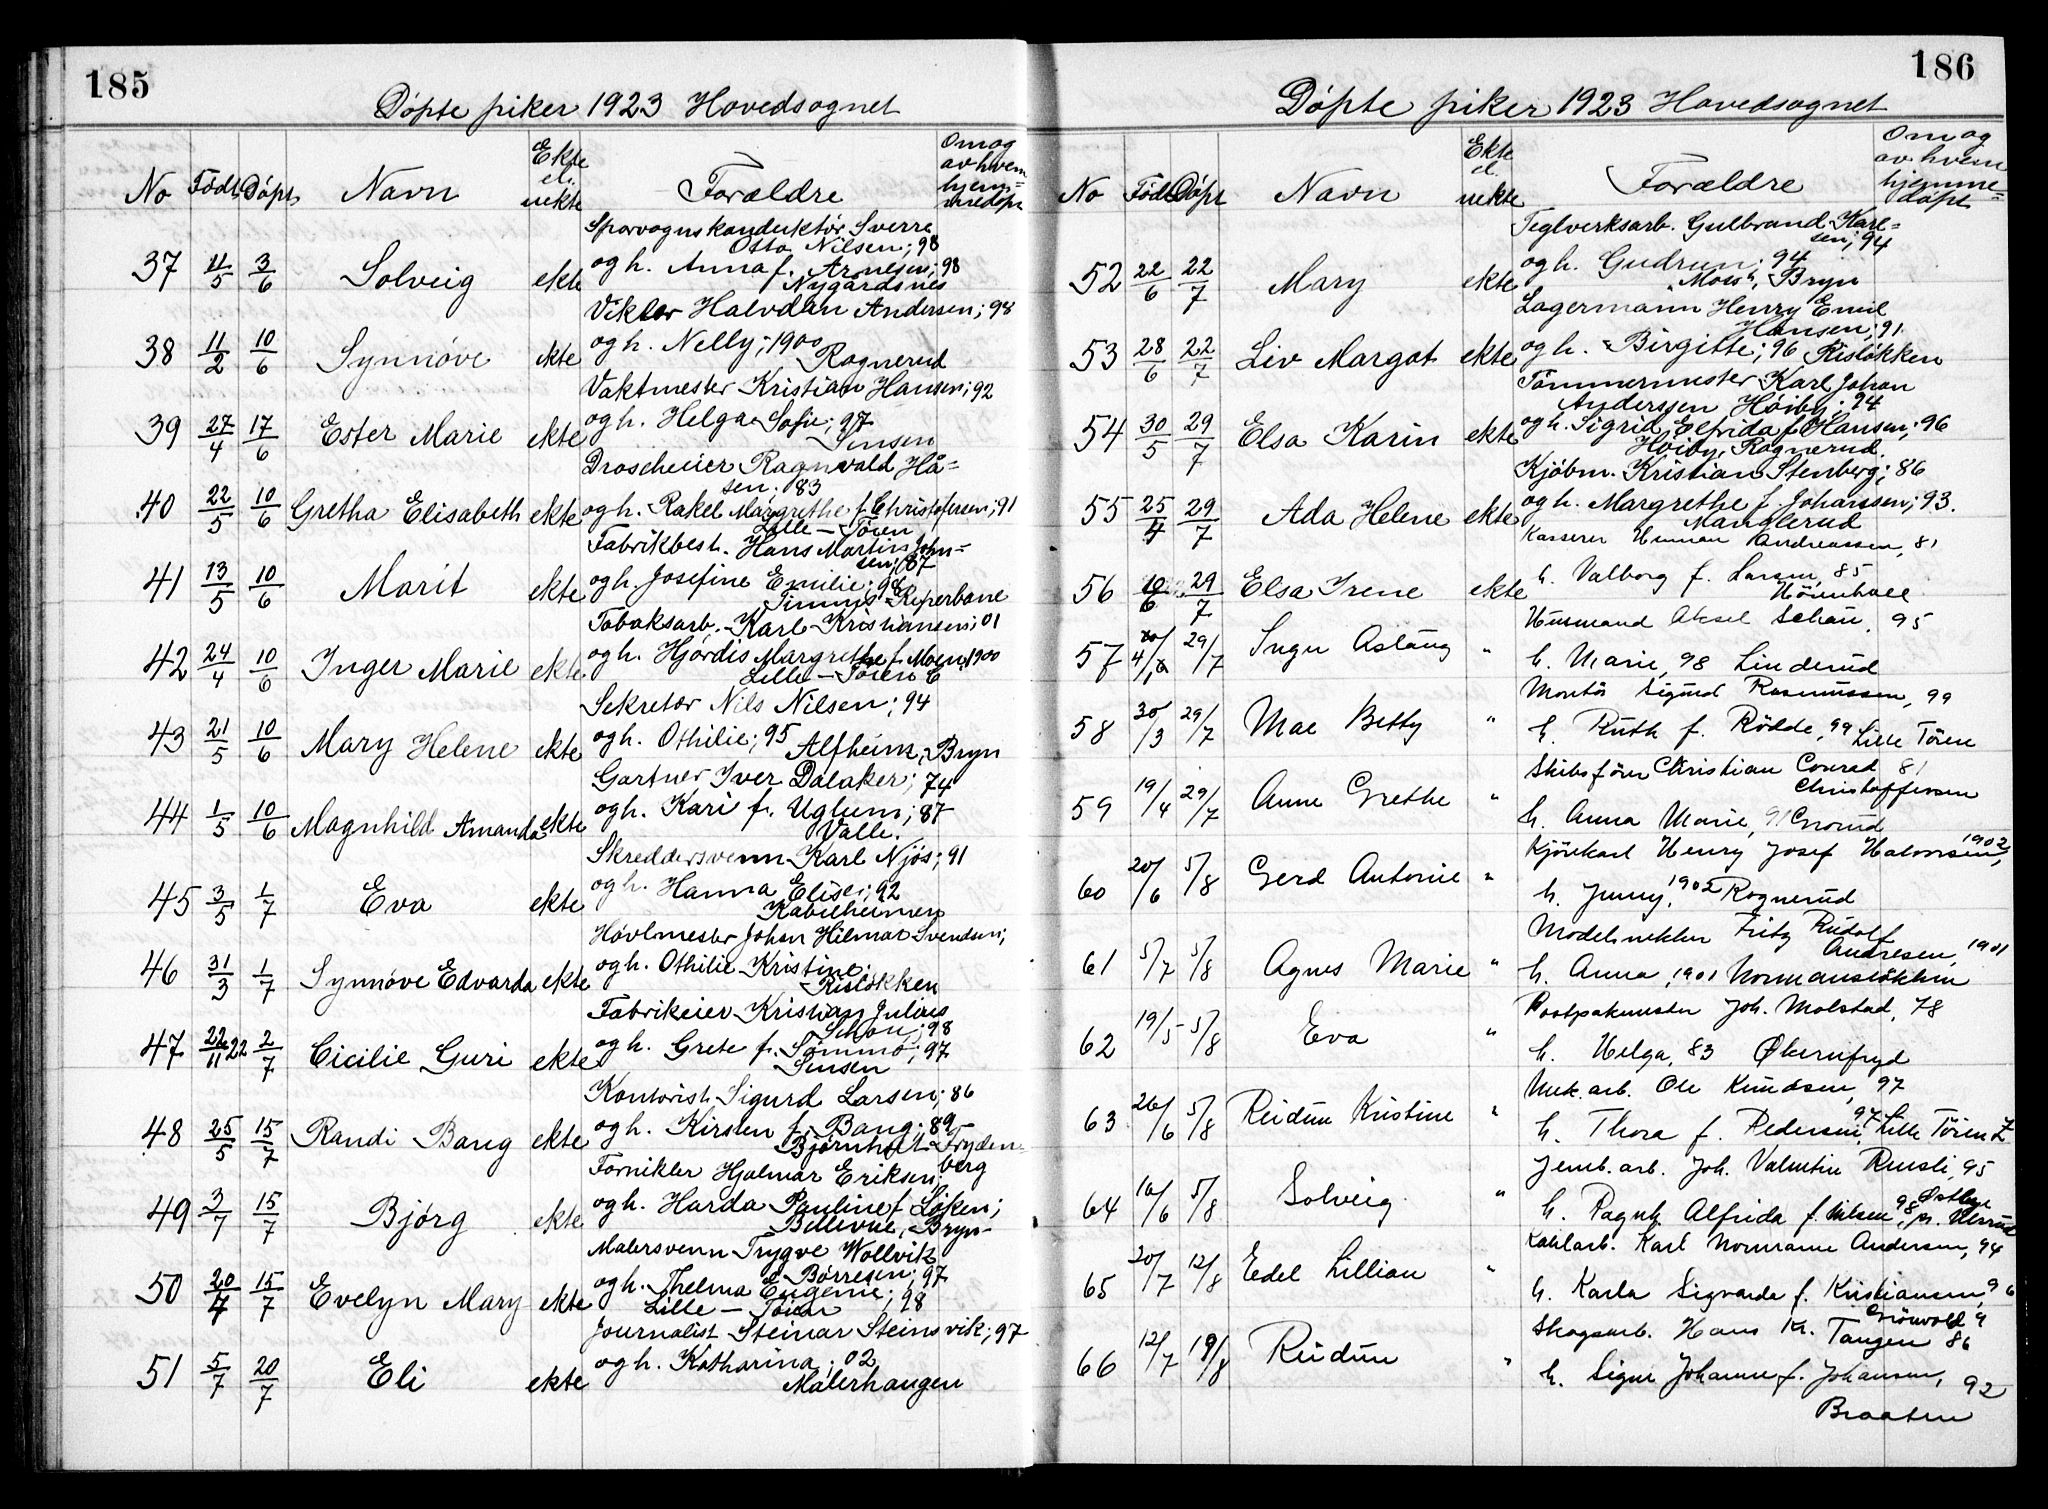 185
Döpte piker 1923 Hovedsognet
No Födt Döpt Navn Ekte el. uekte Forældre Om og av hvem hjem=medöpt
Sporvognskonduktör Sverre
Otto Nilsen; 98
37 11/5 3/6 Solveig ekte og h. Anna f. Arnesen; 98
Nygårdsnes
Viktor Halvdan Andersen; 98
38 11/2 10/6 Synnöve ekte og h. Nelly; 1900
Rognerud
Vaktmester Kristian Hansen; 92
39 27/4 17/6 Ester Marie ekte og h. Helga Sofie; 97
Sinsen
Droscheeier Ragnvald Hå=
sen; 83
40 22/5 10/6 Gretha Elisabeth ekte og h. Rakel Margrethe f. Christofersen; 91
Lille-Töien
Fabrikbest. Hans Martin John=
sen; 87
41 13/5 10/6 Marit ekte og h. Josefine Emilie; 98
Reperbane
Tobaksarb. Karl Kristiansen; 01
42 24/4 10/6 Inger Marie ekte og h. Hjördis Margrethe f. Moen; 1900
Lille-Töien E
Sekretær Nils Nilsen; 94
43 21/5 10/6 Mary Helene ekte og h. Othilie; 95
Alfheim, Bryn
Gartner Iver Dalaker; 74
44 1/5 10/6 Magnhild Amanda ekte og h. Kari f. Uglum; 87
Valle.
Skreddersvenn Karl Njös; 91
45 3/5 1/7 Eva ekte og h. Hanna Elise; 92
Kabelheimen
Hövlmester Johan Hilmar Svendsen;
46 31/3 1/7 Synnöve Edvarda ekte og h. Othilie Kristine;
Rislökken
Fabrikeier Kristian Julius
Schou; 98
47 22/11 22 2/7 Cicilie Guri ekte og h. Grete f. Sömme; 97
Sinsen
Kontorist Sigurd Larsen; 86
48 25/5 15/7 Randi Bang ekte og h. Kirsten f. Bang; 89
Björnholt Fryden=
berg
Fornikler Hjalmar Eriksen;
49 3/7 15/7 Bjørg ekte og h. Harda Pauline f. Löken;
Bellevue, Bryn
Malersvenn Trygve Wollvik
Börresen; 97
50 20/4 15/7 Evelyn Mary ekte og h. Thelma Eugenie; 98
Lille-Töien
Journalist Steinar Steinsvik; 97
51 5/7 20/7 Eli ekte og h. Katharina; 02
Malerhaugen
186
Döpte piker 1923 Hovedsognet
No Födt Döpt Navn Ekte el. uekte Forældre Om og av hvem hjemme=döpt
Teglverksarb. Gulbrand Karl=
sen; 94
52 22/6 22/7 Mary ekte og h. Gudrun; 94
"Mosh", Bryn
Lagermann Henry Emil
Hansen; 91
53 28/6 22/7 Liv Margot ekte og h. Birgitte; 96 Rislökken
Tömmermester Karl Johan
Anderssen Höiby; 94
54 30/5 29/7 Elsa Karin ekte og h. Sigrid Elfrida f. Hansen; 96
Höiby, Rognerud.
Kjöbm. Kristian Stenberg; 86
55 25/4 29/7 Ada Helene ekte og h. Margrethe f. Johanssen; 93.
Manglerud
Kasserer Herman Andreassen, 81
56 10/6 29/7 Elsa Irene ekte h. Valborg f. Larsen, 85
Husmand Aksel Schau, 95
57 29/7 Inger Aslaug " h. Marie, 98 Linderud
Montör Sigurd Rasmussen, 99
58 30/3 29/7 Mae Betty " h. Ruth f. Rödde, 99 Lille Töien
Skibsförer Christian Conrad 81
Christoffersen
59 19/4 29/7 Anne Grethe " h. Anna Marie, 91 Grorud
Kjörekarl Henry Josef Halvorsen, 1902
60 20/6 5/8 Gerd Antonie " h. Jenny, 1902 Rognerud
Modelsnekker Fritz Rudolf
Andresen, 1901
61 5/7 5/8 Agnes Marie " h. Anna, 1901 Normanslökken
Postpakmester Joh. Molstad, 78
62 19/5 5/8 Eva " h. Helga, 83 Økernfryd
Mek.arb. Ole Knudsen, 97
63 26/6 5/8 Reidun Kristine " h. Thora f. Pedersen, 97 Lille Töien Z
Jernb.arb. Joh. Valentin Ruusti, 95
64 16/6 5/8 Solveig " h. Ragnh. Alfrida f. Nilsen, 98 Østbye
Kabelarb. Karl Normann Andersen, 94
65 20/7 12/8 Edel Lillian " h. Karla Sigvarda f. Kristiansen, 96
Grönvold 9
Skogsarb. Hans Kr. Tangen 86
66 12/7 19/8 Reidun " h. Signe Johanne f. Johansen, 92
Braaten